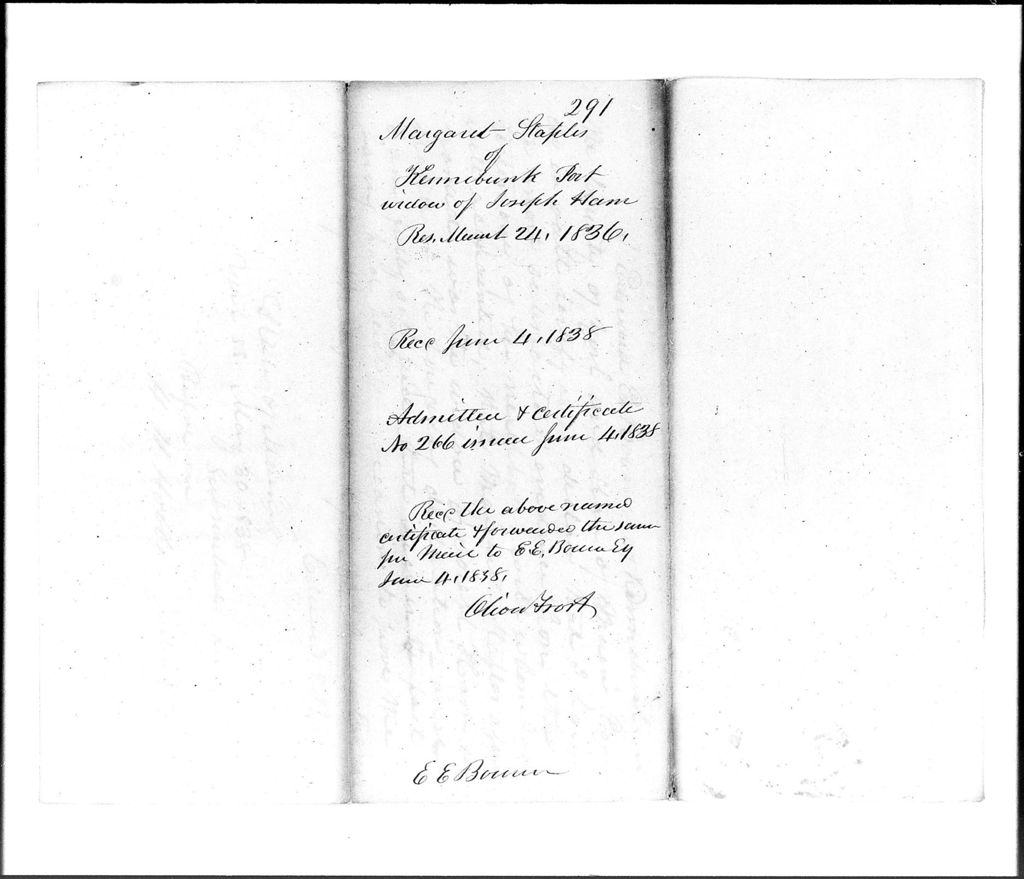 291
Margaret Staples
of
Kennebunk Port
widow of Joseph Ham
Res. March 24, 1836,
Recd June 4, 1838
Admitted & certificate
No 266 issued June 4, 1838
Recd the above named
certificate & forwarded the same
per Mail to E. E. Bourne Esq
June 4, 1838,
Frost
E E Bourne